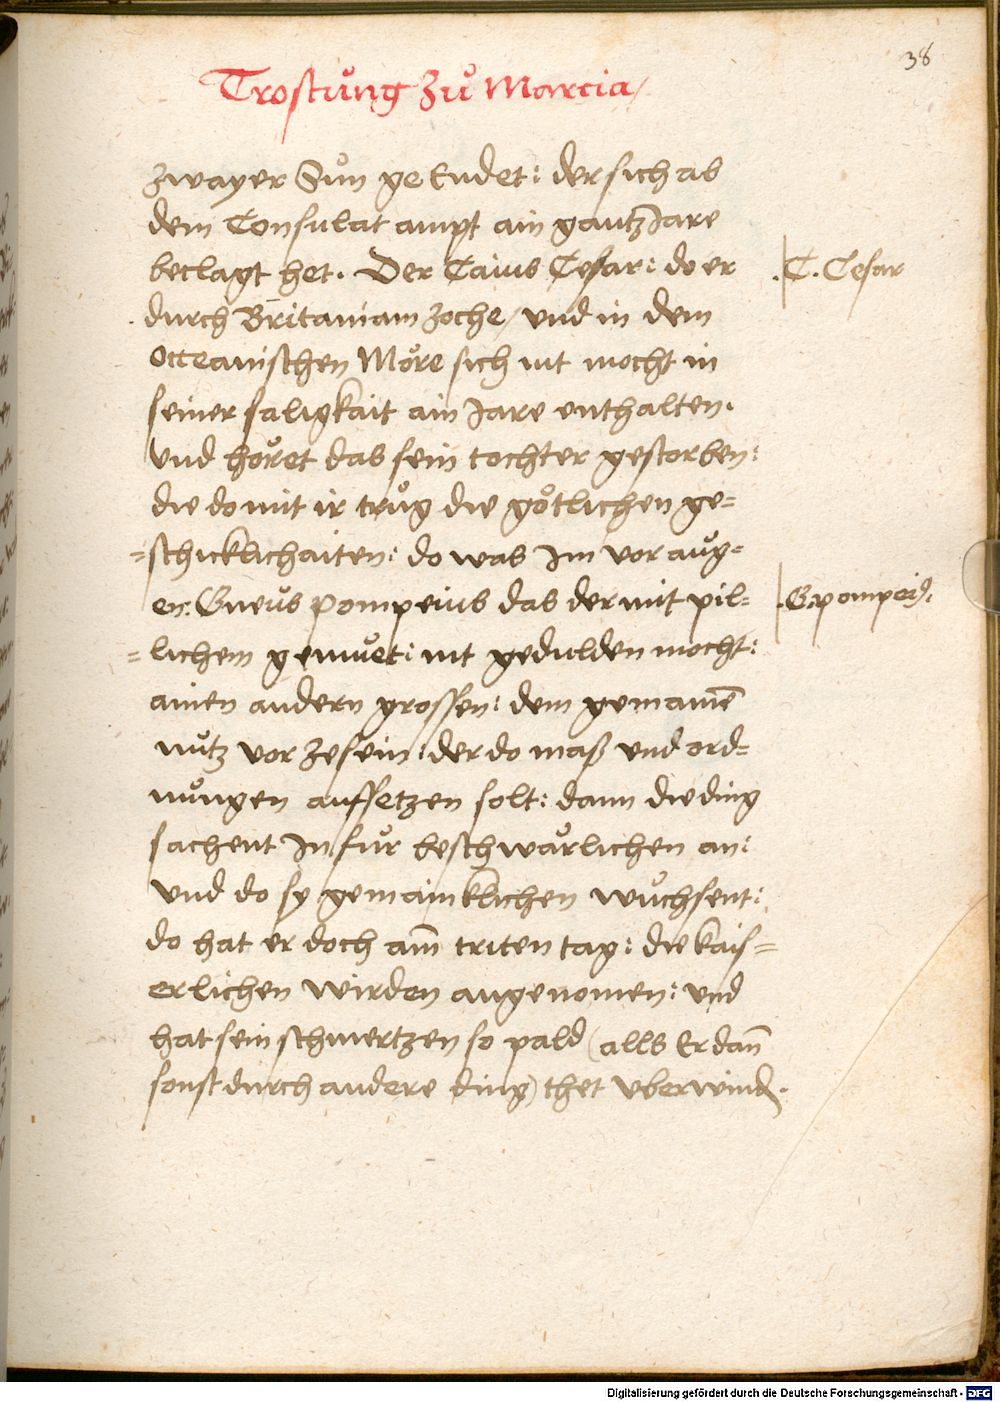 38
Trostůng zů Marcia/
zwayer Sůn ge Endet: der sich ab
dem Consulat ampt ain gantz Jare
beclagt het. Der Caius Cesar: do er
C. Cesar
durch Britaniam zoche/ und in dem
Occeanischen Möre sich nit mocht in
seiner saligkait ain Jare enthalten.
und höret das sein tochter gestorben:
die do mit ir trůg die götlichen ge=
=schicklichaiten: do was Im vor aůg=
en: Gneůs Pompeius das der mit pil=
G. pompei9.
=lichem gemüet: nit gedulden mocht:
ainen andern grossen: dem gemainē
nůtz vor zesein: der do maß und ord=
nůngen auffsetzen solt: dann die ding
sachent In für beschwärlichen an:
und do sy gemainklichen wůchsent:
do hat er doch am̄ triten tag: die kais=
erlichen wirden angenomen: und
hat sein schmertzen so pald (alls Er dan̄
sonst durch andere ding) thet uberwind̄.
Digitalisierung gefördert durch die Deutsche Forschungsgemeinschaft - DFG